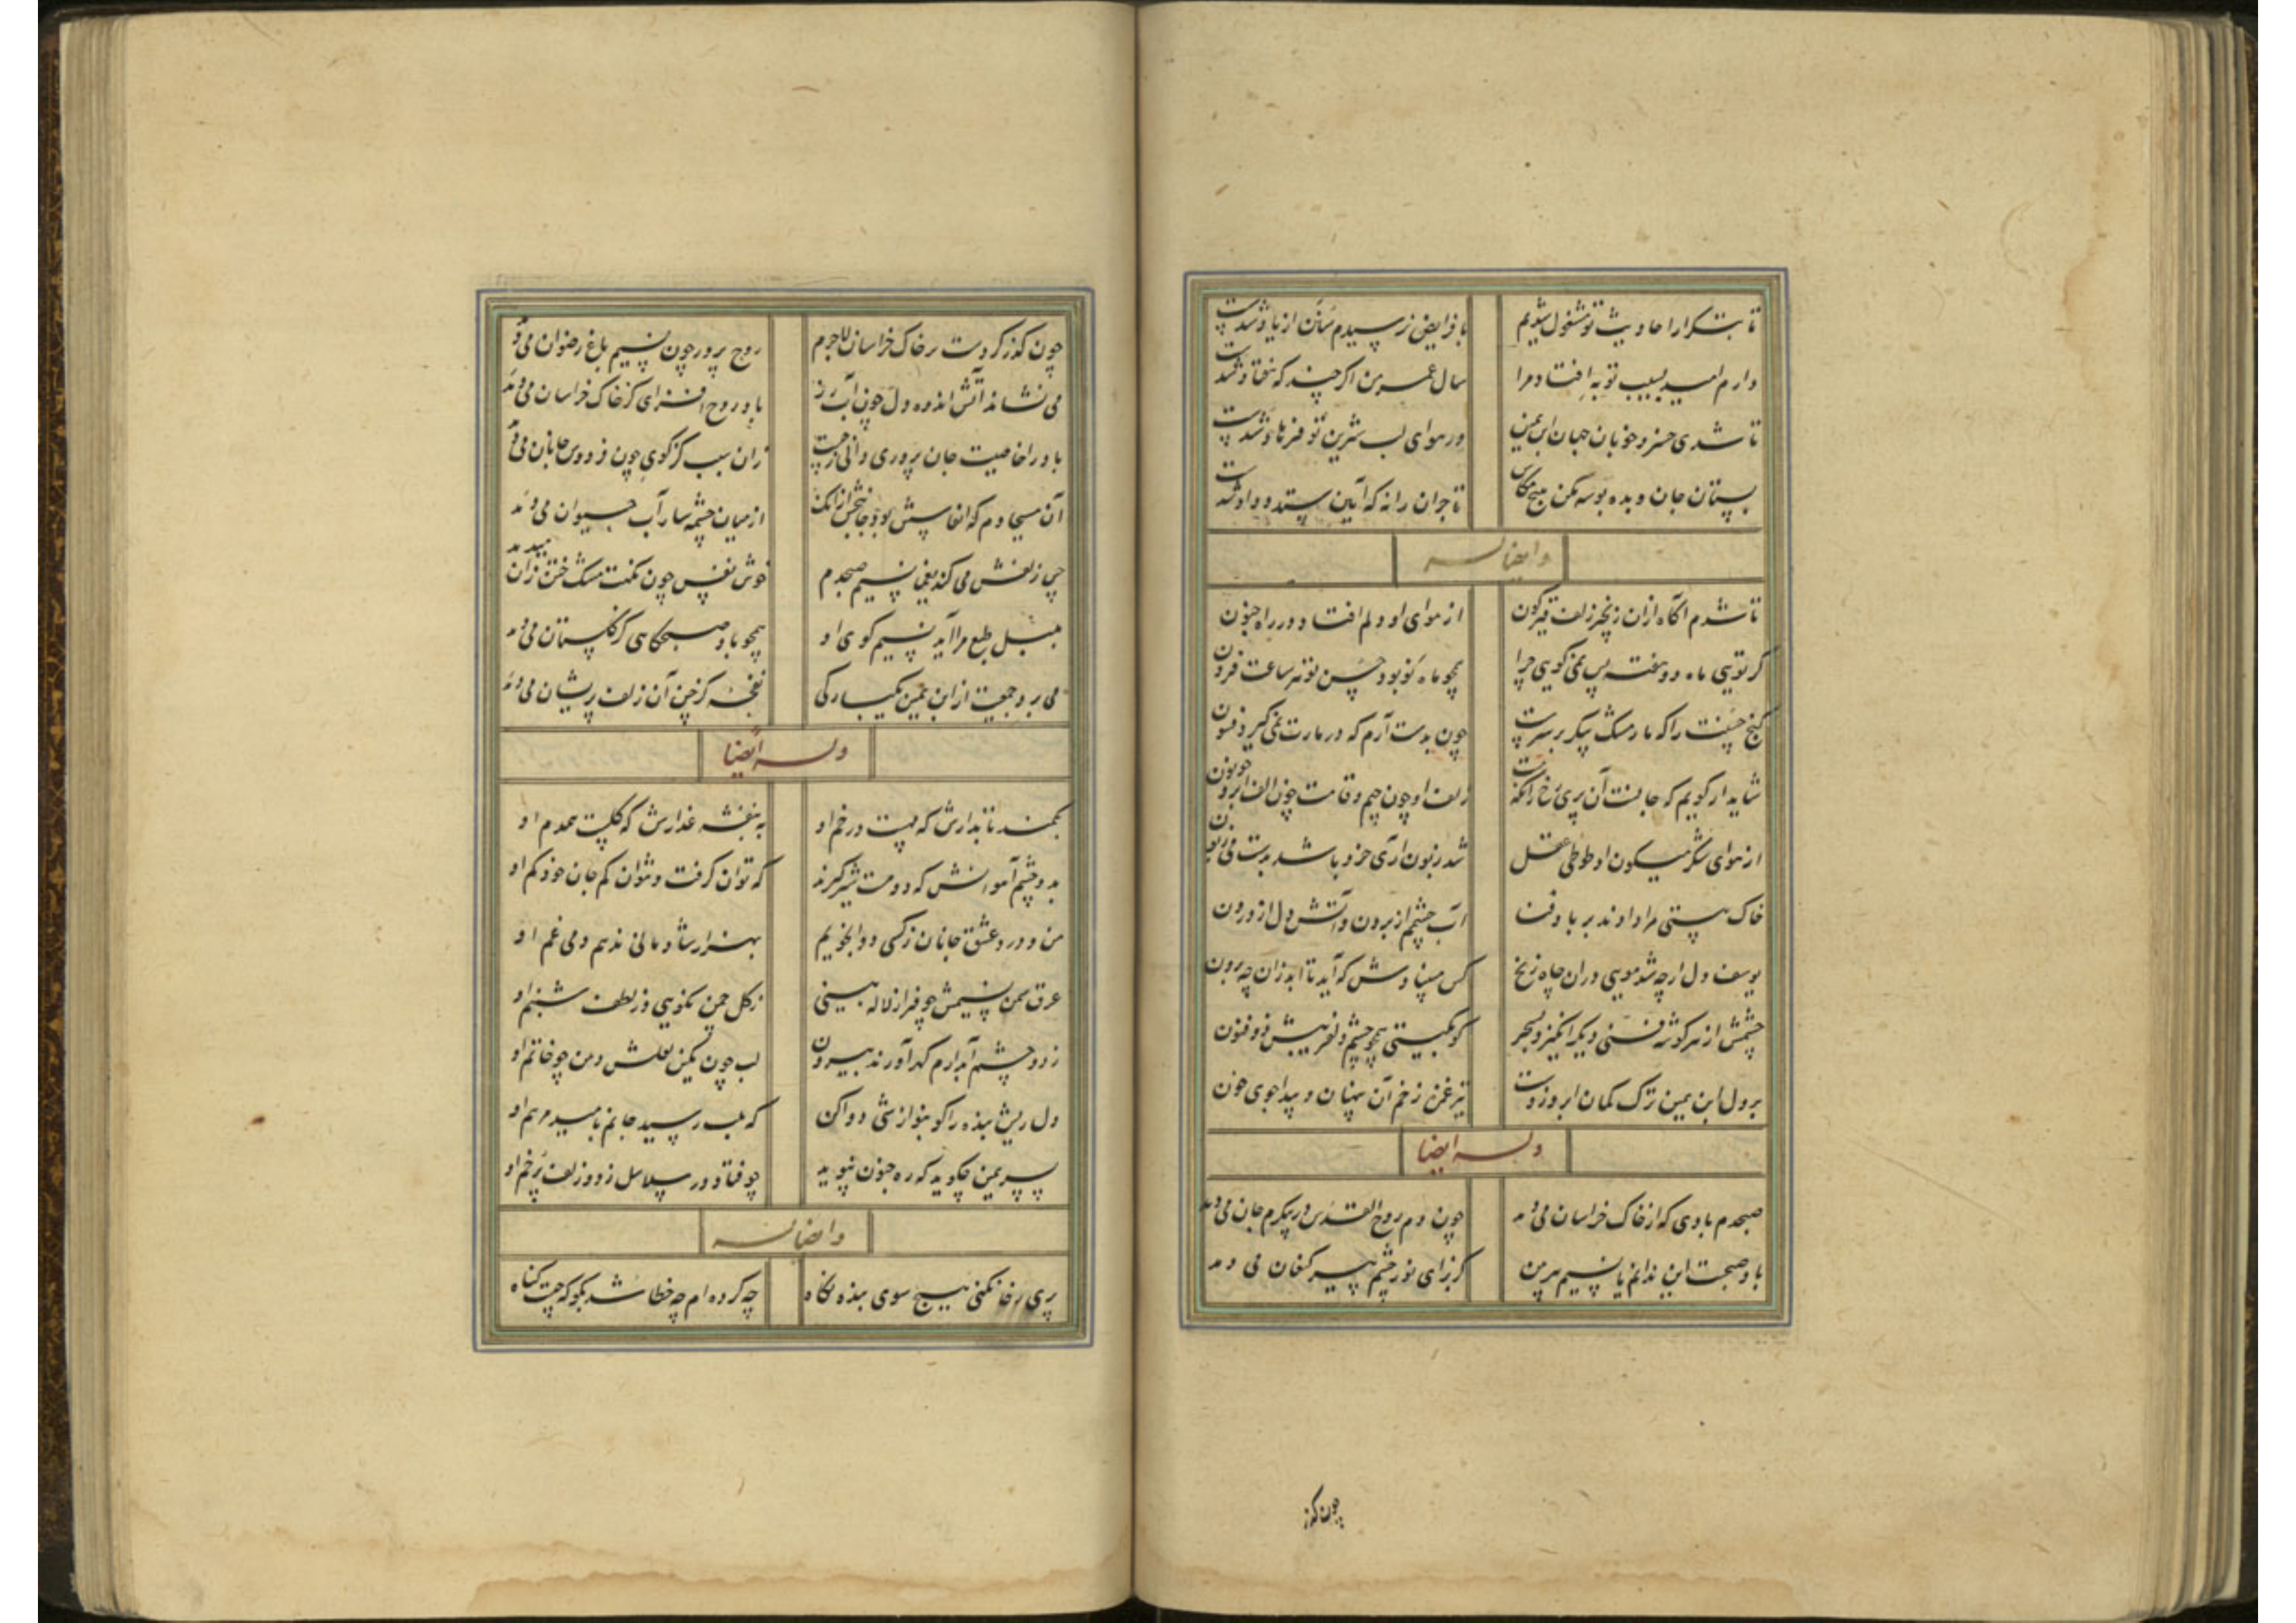 تا بتکرار احادیث تو مشغول شدیم با فرایض نرسیدم سنن از یاد شدست
دارم امید بسیب تو به افتاد مرا سال عمر من اگر چند که هفتاد شدست
تا شدی خسرو خوبان جهان ابن یمین در هوای لب شیرین تو فرهاد شدست
بستان جان و بده بوسه مکن هیچ مکاس تاجران را نه که آیین ستد و داد شدست
وایضا له
تا شدم آگاه ازان زنجیر زلف قیرگون از هوای او دلم افتاد در راه جنون
گر تویی ماه دو هفته پس نمی‌گویی چرا همچو ماه نو بود حسن تو هر ساعت فزون
گنج حسنت را که مار مشک پیکر بر سرست چون بدست آرم که در مارت نمی‌گیرد فسون
شاید ار گویم که جانست آن پری رخ رانکه زلف او چون جیم و قامت چون الف ابرو چو نون
از هوای شکر میگون او طوطی عقل شد زبون آری خرد باشد بدست می زبون
خاک هستی مرا دادند بر باد فنا آب چشم از برون و آتش دل از درون
یوسف دل ار چه شد مویی دران چاه زنخ کس مبینادش که آید تا ابد زان چه برون
چشمش از هر گوشه فتنی دیگر انگیزد بسحر کو بگیتی همچو چشم دلفریبش ذوفنون
بر دل ابن یمین ترک کمان ابرو زدست تیر غمزه زخم آن پنهان و پیدا جوی خون
وله ایضا
صبحدم بادی که از خاک خراسان می دمد چون دم روح القدس در پیکرم جان می دمد
باد صبحست این ندانم یا نسیم پیرهن کز برای نور چشم پیر کنعان می دمد
چون گذر
چون گذر کردست بر خاک خراسان لاجرم روح پرور چون نسیم باغ رضوان می دمد
می نشاند آتش اندوه دل چون آب رز باد روح افزای کز خاک خراسان می دمد
باد را خاصیت جان پروری دانی ز چیست زان سبب کز کوی چون فردوس جانان می دمد
آن مسیحا دم که انفاسش بود جانبخش ازانک از میان چشمه سار آب حیوان می دمد
چین زلفش می کند یغما نسیم صبحدم خوش نفس چون نکهت مشک ختن زان می دمد
بلبل طبع مرا آید نسیم کوی او همچو باد صبحگاهی کز گلستان می دمد
می برد جمعیت از ابن یمین یکبارگی نفحهٔ کز چین آن زلف پریشان می دمد
وله ایضا
بکمند تابدارش که مهست در خم او به بنفشه عذارش که گلیست همدم او
بدو چشم آهوانش که دو مست شیرگیرند که توان گرفت و نتوان کم جان خود کم او
من و درد عشق جانان ز کسی دوا نجویم بهزار شادمانی ندهم دمی غم او
عرق سمن نسیمش چو فراز لاله بینی ز گل چمن نگویی وز لطف شبنم او
ز دو چشم آبدارم گهر آورند بیرون لب چون نگین لعلش دهن چو خاتم او
دل ریش بنده را کو بنوازشی دوا کن که بلب رسید جانم بامید مرهم او
پسر یمین چگوید که ره جنون نپوید چو فتاد در سلاسل ز دو زلف پرخم او
وایضا له
پری رخا نکنی هیچ سوی بنده نگاه چه کرده ام چه خطا شد بگو که چیست گناه